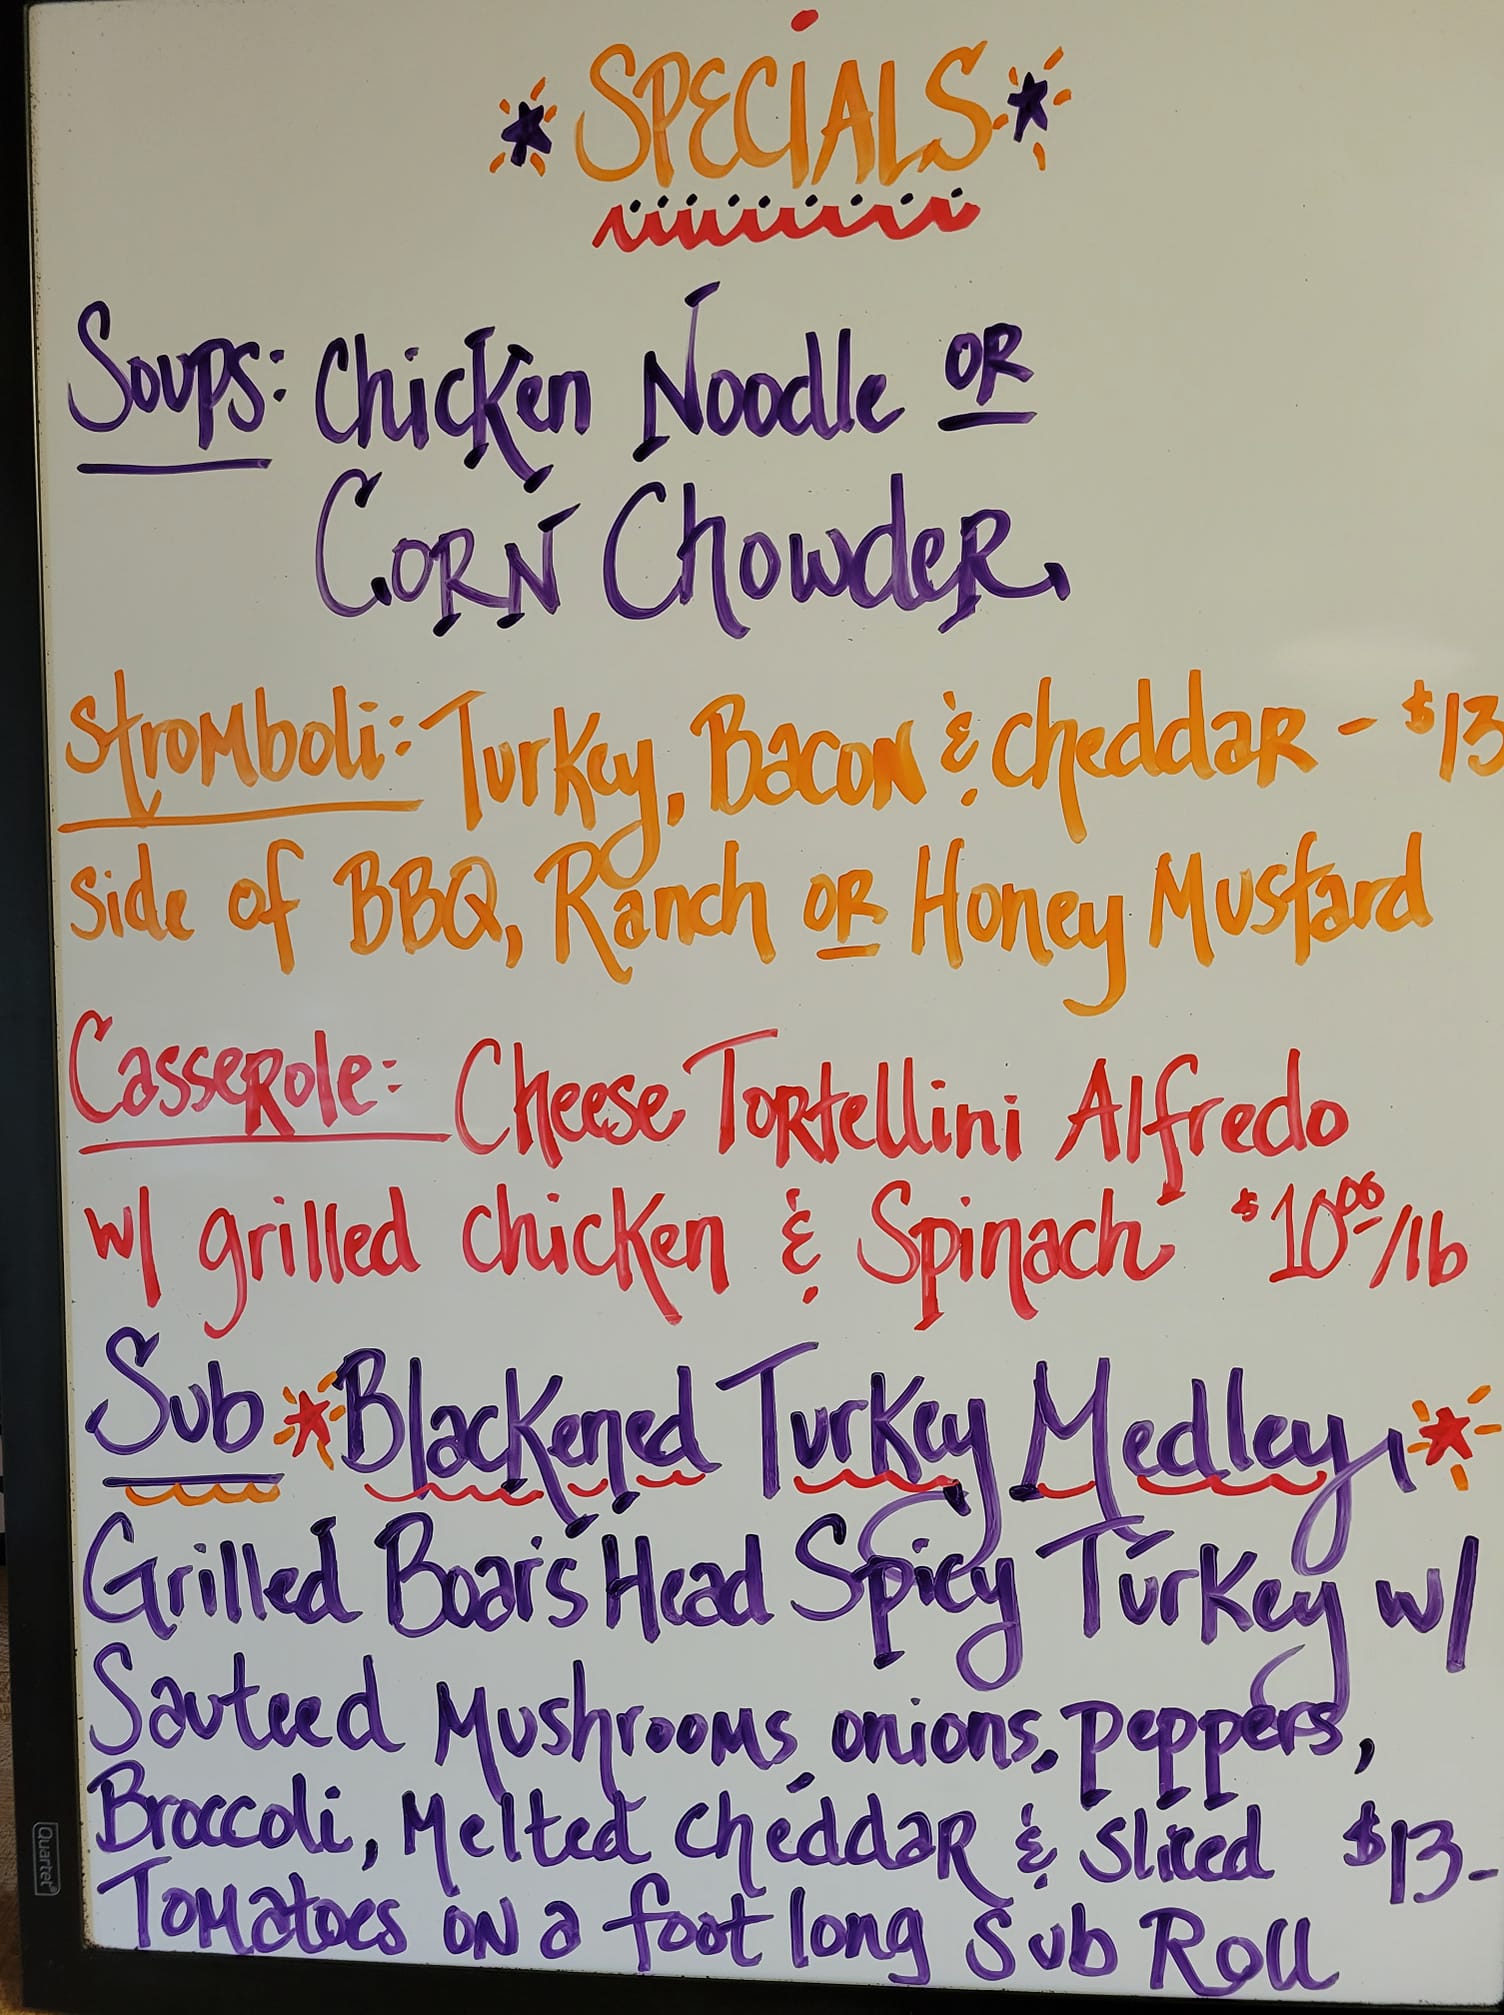 SPECiALS
Soups: Chicken Noodle OR
CORN ChowdeR.
Stromboli: Turkey, Bacon & cheddaR - $13
side of BBQ, Ranch OR Honey Mustard
CasseRole: Cheese ToRtellini Alfredo
w/ grilled chicken & Spinach $10.00/lb
Sub Blackened Turkey Medley,
Grilled Boar's Head Spicy Turkey w/
Sauteed Mushrooms, onions, peppers,
Broccoli, Melted cheddaR & Sliced $13-
Tomatoes on a foot long Sub Roll
Quartet®